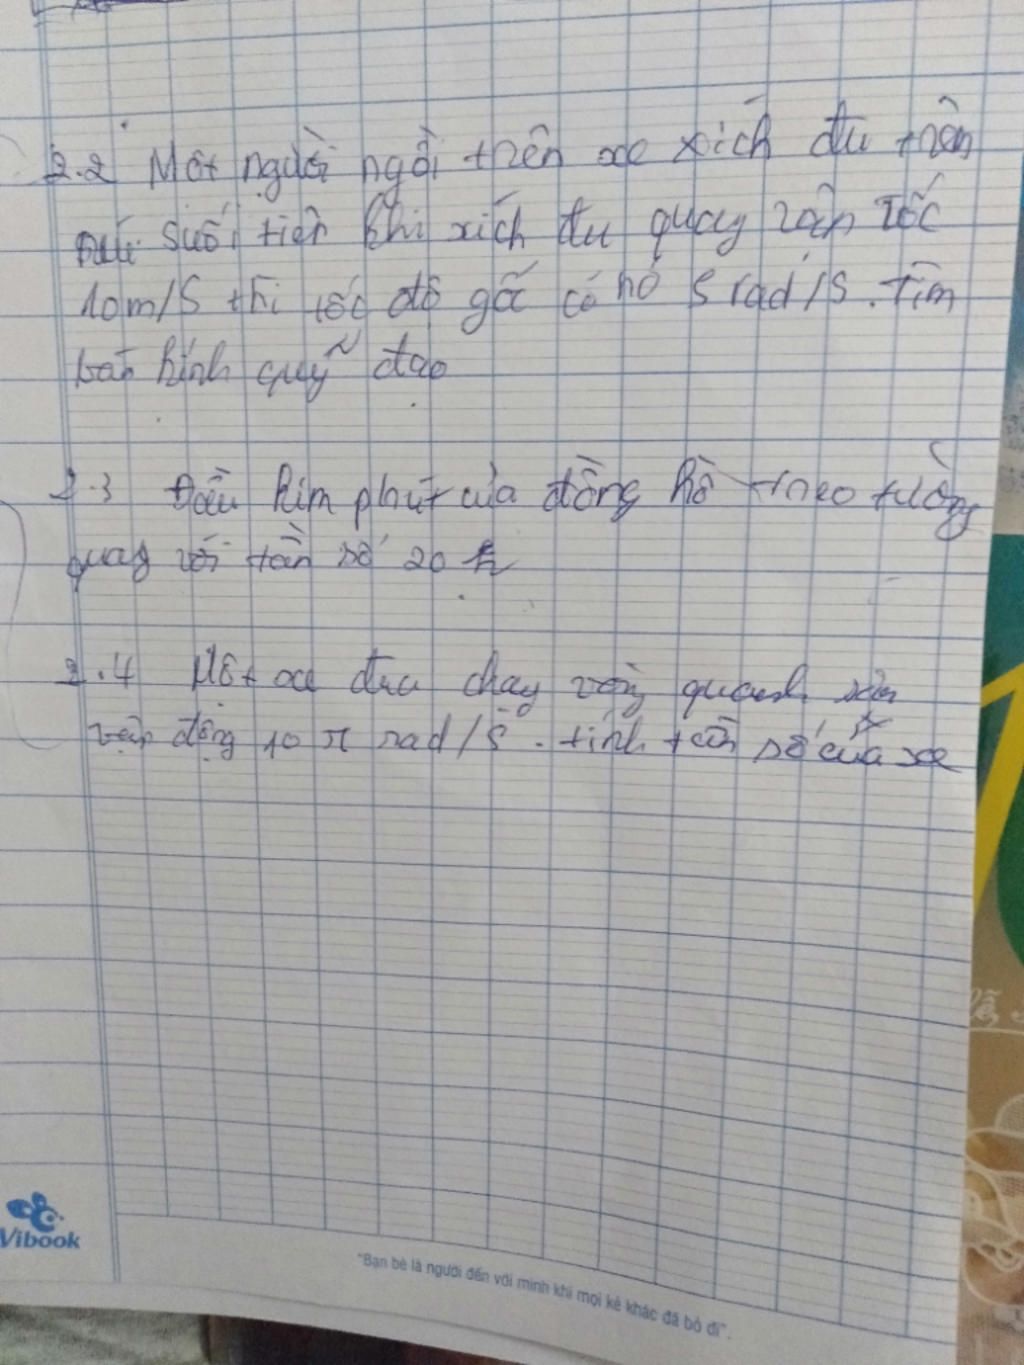 2.2 Một người ngồi trên xe xích đu trên
suối tiên khi xích đu quay vận tốc
10m/s thì tốc độ gốc có nó 5 rad/s. Tìm
bán kính quỹ đạo
2.3 Đầu kim phút của đồng hồ treo tường
quay với tần số 20
2.4 Một xe đua chạy vòng quanh sân
vận động 10 π rad/s. tính tần số của xe
Vibook
"Bạn bè là người đến với mình khi mọi kẻ khác đã bỏ đi".